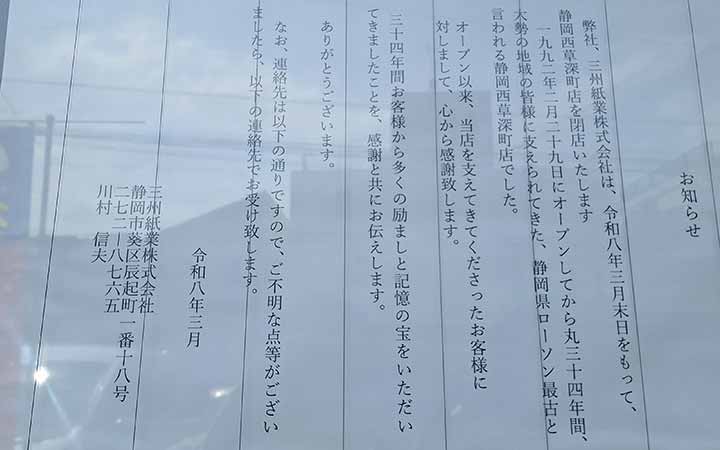 お知らせ
弊社、三州紙業株式会社は、令和八年三月末日をもって、
静岡西草深町店を閉店いたします
一九九二年二月二十九日にオープンしてから丸三十四年間、
大勢の地域の皆様に支えられてきた、静岡県ローソン最古と
言われる静岡西草深町店でした。
オープン以来、当店を支えてきてくださったお客様に
対しまして、心から感謝致します。
三十四年間お客様から多くの励ましと記憶の宝をいただい
てきましたことを、感謝と共にお伝えします。
ありがとうございます。
なお、連絡先は以下の通りですので、ご不明な点等がござい
ましたら、以下の連絡先でお受け致します。
令和八年三月
三州紙業株式会社
静岡市葵区辰起町一番十八号
二七二ー八七六五
川村 信夫